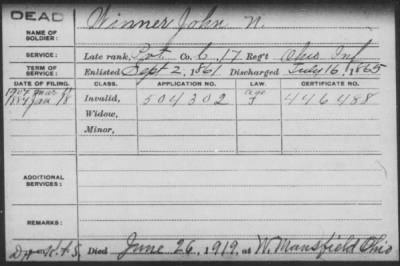 DEAD
NAME OF SOLDIER: Winner John N.
SERVICE: Late rank, Pvt. Co. C, 17 Reg't Ohio Inf
TERM OF SERVICE: Enlisted Sept 2, 1861 Discharged July 16, 1865
DATE OF FILING. CLASS. APPLICATION NO. LAW. CERTIFICATE NO.
1907 Mar age
1884 Jan 18 Invalid, 504302 446488
Widow,
Minor,
ADDITIONAL SERVICES:
REMARKS:
Died June 26, 1919, at W. Mansfield Ohio